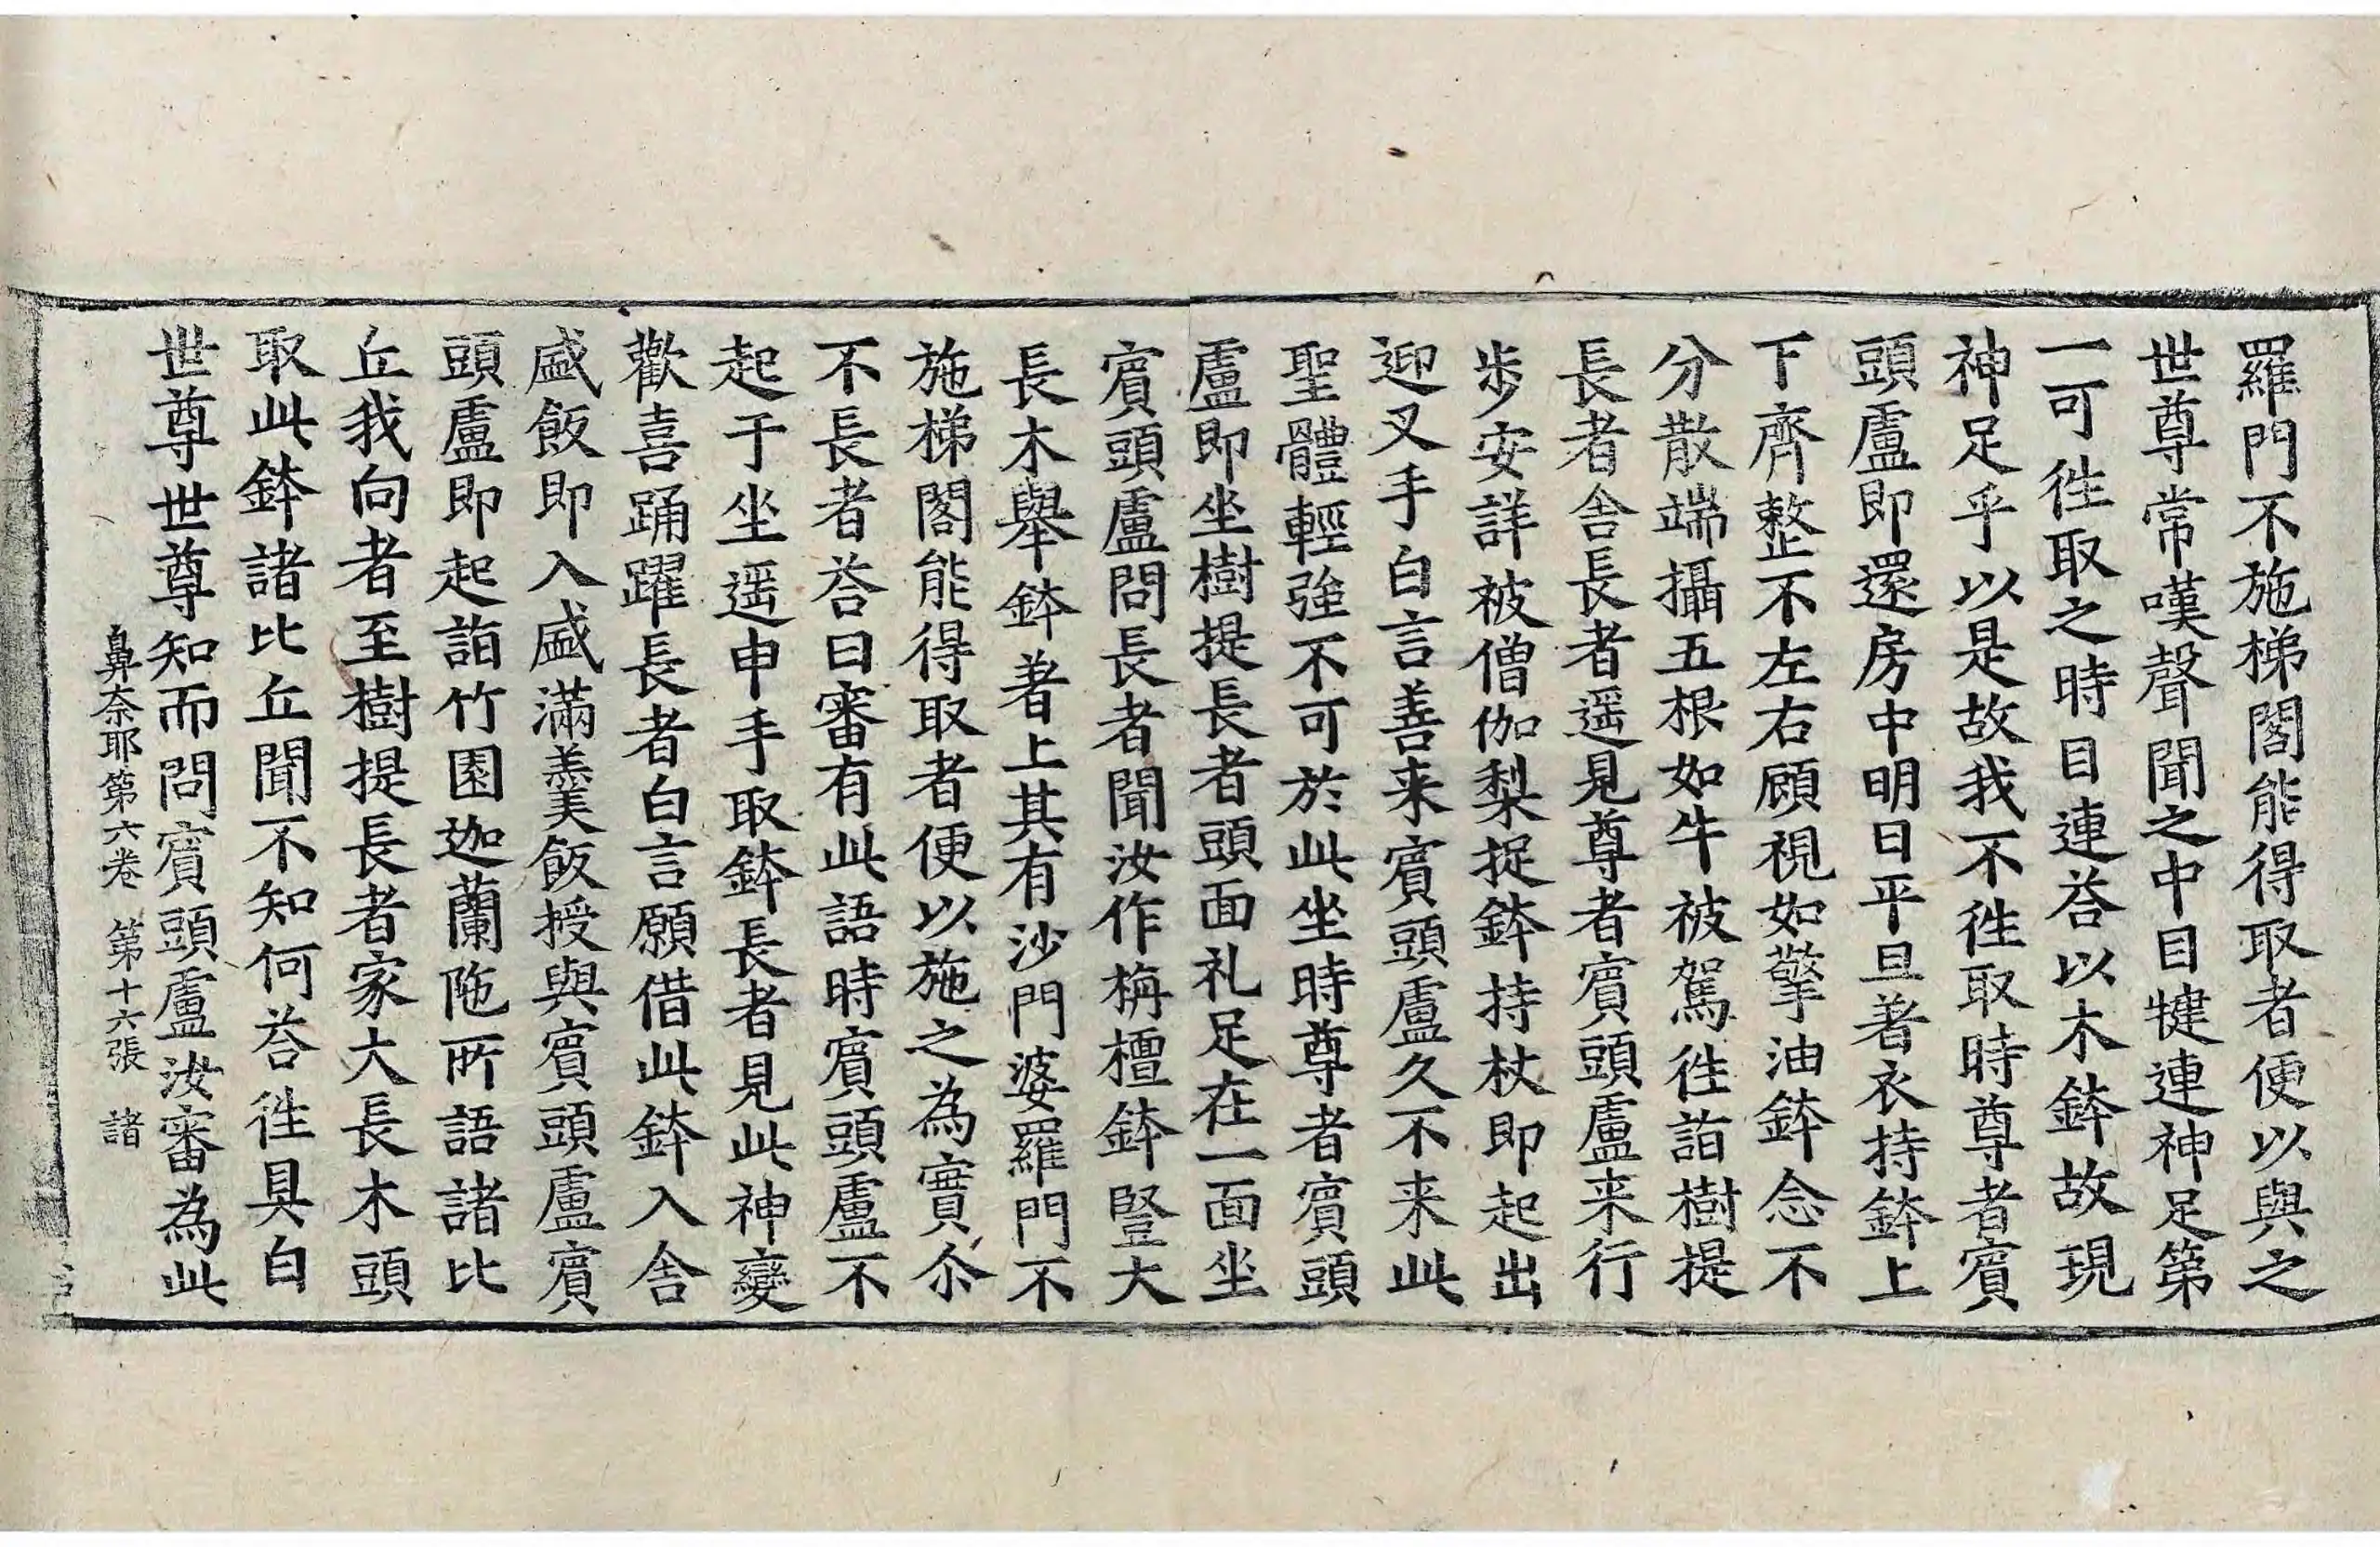 羅門不施梯閣能得取者便以與之
世尊常嘆聲聞之中目犍連神足第
一可徃取之時目連荅以木鉢故現
神足乎以是故我不徃取時尊者賔
頭盧即還房中明日平旦著衣持鉢上
下齊整不左右顧視如擎油鉢念不
分散端攝五根如牛被駕徃詣樹提
長者舎長者遥見尊者賔頭盧来行
歩安詳被僧伽梨捉鉢持杖即起出
迎叉手白言善来賔頭盧久不来此
聖體輕強不可於此坐時尊者賔頭
盧即坐樹提長者頭面礼足在一面坐
賔頭盧問長者聞汝作栴檀鉢豎大
長木舉鉢著上其有沙門婆羅門不
施梯閣能得取者便以施之為實尒
不長者荅曰審有此語時賔頭盧不
起于坐遥申手取鉢長者見此神變
歡喜踊躍長者白言願借此鉢入舎
盛飯即入盛滿羹飯授與賔頭盧賔
頭盧即起詣竹園迦蘭陁所語諸比
丘我向者至樹提長者家大長木頭
取此鉢諸比丘聞不知何荅徃具白
世尊世尊知而問賔頭盧汝審為此
鼻奈耶第六卷 第十六張 諸